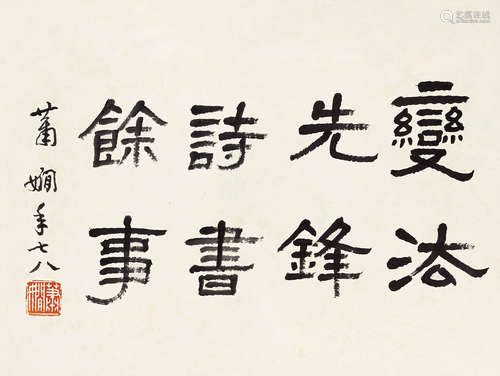 變法
先鋒
詩書
餘事
蕭嫻年七八